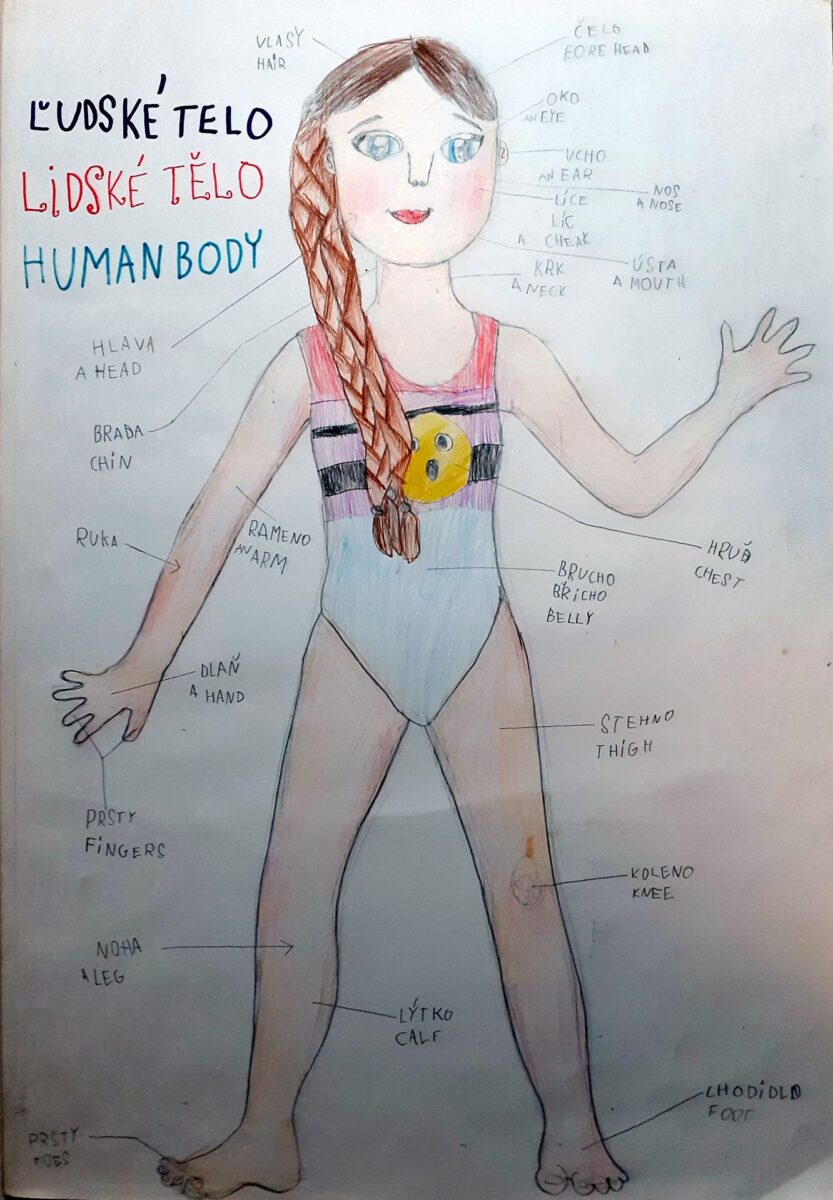 ĽUDSKÉ TELO
LIDSKÉ TĚLO
HUMAN BODY
VLASY
HAIR
ČELO
FOREHEAD
OKO
AN EYE
UCHO
AN EAR
NOS
A NOSE
LÍCE
LÍC
A CHEAK
ÚSTA
A MOUTH
KRK
A NECK
HLAVA
A HEAD
BRADA
CHIN
RUKA
RAMENO
AN ARM
HRUĎ
CHEST
BRUCHO
BŘICHO
BELLY
DLAŇ
A HAND
STEHNO
THIGH
PRSTY
FINGERS
KOLENO
KNEE
NOHA
A LEG
LÝTKO
CALF
CHODIDLO
FOOT
PRSTY
TOES